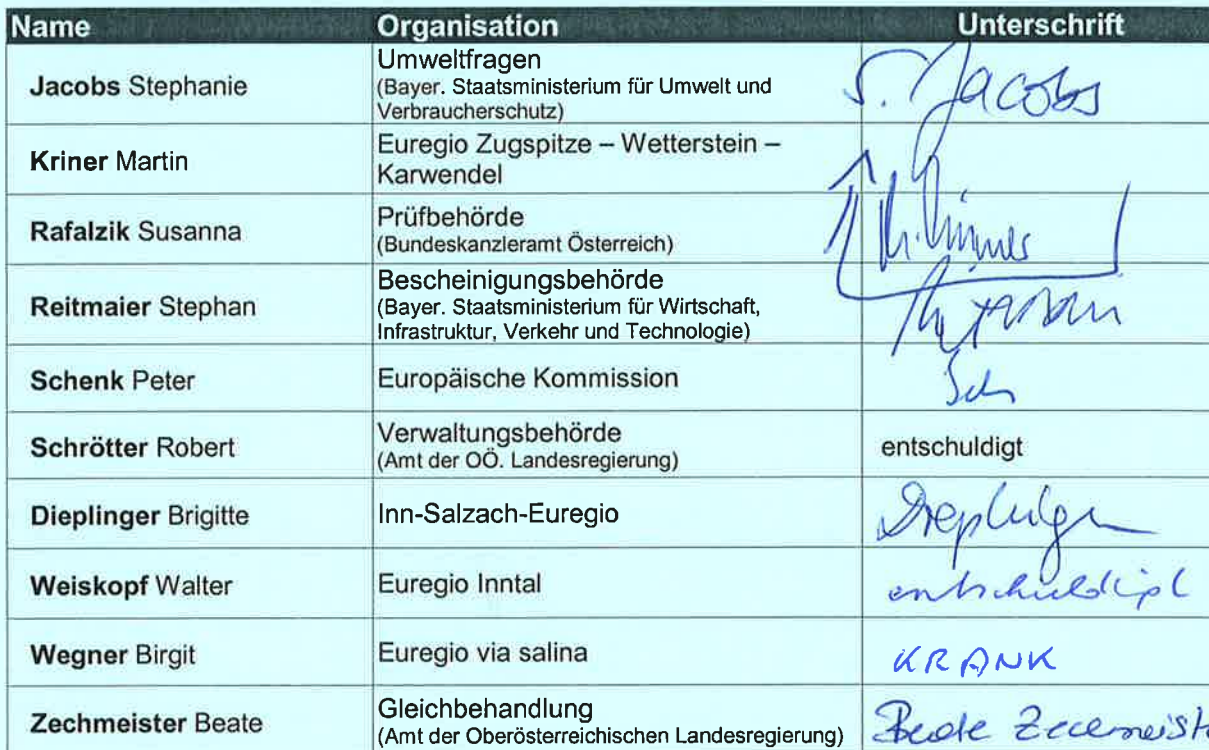 Name Organisation Unterschrift
Jacobs Stephanie Umweltfragen S. Jacobs
(Bayer. Staatsministerium für Umwelt und
Verbraucherschutz)
Kriner Martin Euregio Zugspitze – Wetterstein –
Karwendel
Rafalzik Susanna Prüfbehörde
(Bundeskanzleramt Österreich)
Reitmaier Stephan Bescheinigungsbehörde
(Bayer. Staatsministerium für Wirtschaft,
Infrastruktur, Verkehr und Technologie)
Schenk Peter Europäische Kommission Sch
Schrötter Robert Verwaltungsbehörde entschuldigt
(Amt der OÖ. Landesregierung)
Dieplinger Brigitte Inn-Salzach-Euregio Dieplinger
Weiskopf Walter Euregio Inntal entschuldigt
Wegner Birgit Euregio via salina KRANK
Zechmeister Beate Gleichbehandlung Beate Zechmeist
(Amt der Oberösterreichischen Landesregierung)